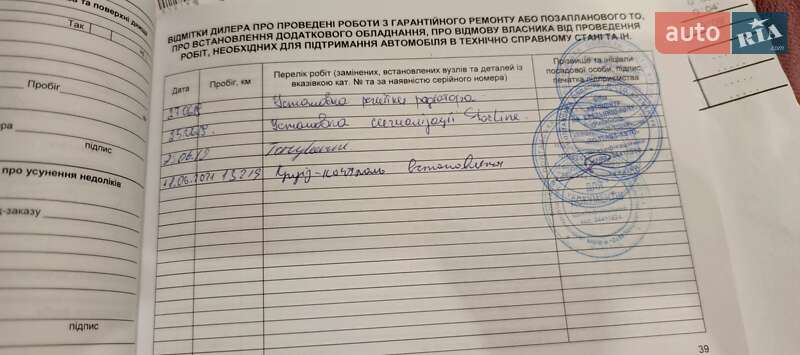 та поверхні днища
Так
Пробіг
підпис
про усунення недоліків
д-заказу
підпис
ВІДМІТКИ ДИЛЕРА ПРО ПРОВЕДЕНІ РОБОТИ З ГАРАНТІЙНОГО РЕМОНТУ АБО ПОЗАПЛАНОВОГО ТО,
ПРО ВСТАНОВЛЕННЯ ДОДАТКОВОГО ОБЛАДНАННЯ, ПРО ВІДМОВУ ВЛАСНИКА ВІД ПРОВЕДЕННЯ
РОБІТ, НЕОБХІДНИХ ДЛЯ ПІДТРИМАННЯ АВТОМОБІЛЯ В ТЕХНІЧНО СПРАВНОМУ СТАНІ ТА ІН.
Дата
Пробіг, км
Перелік робіт (замінених, встановлених вузлів та деталей із
вказівкою кат. № та за наявністю серійного номера)
Прізвище та ініціали
посадової особи, підпис,
печатка підприємства
Установка решітки радіатора
Установка сигналізації Starline.
Тонування
.06.2021 13219 Круїз-контроль встановлення
39
auto RIA.com